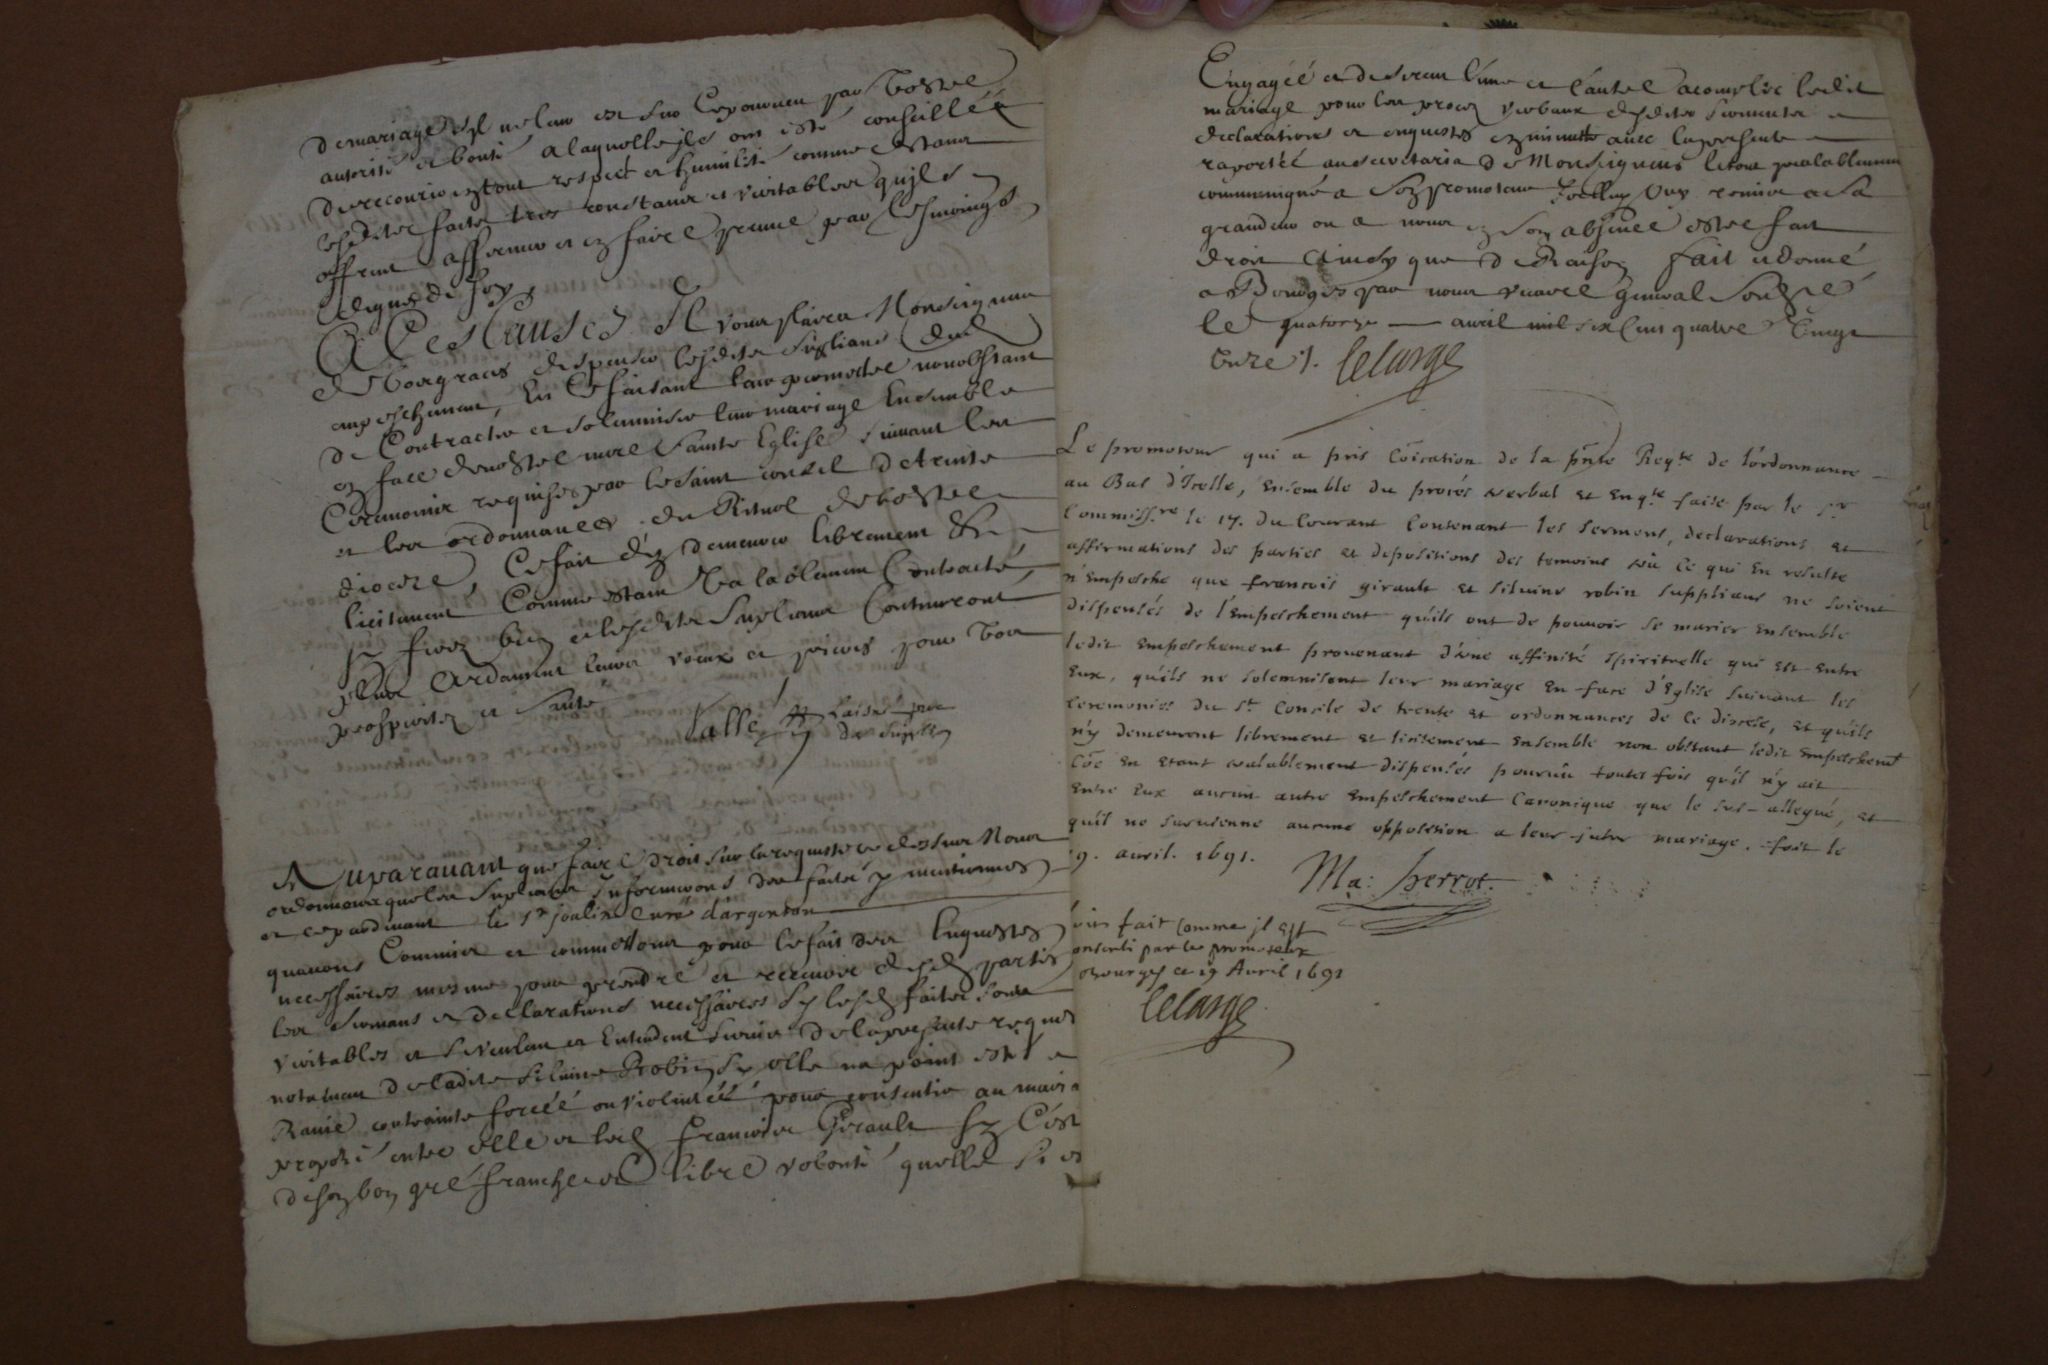 de mariage sil ne leur est sur ce pourveu par vostre
autorité et bonté a laquelle ils ont esté conseillés
de recourir en tout respect et humilité comme estant
lesdites faits tres constans et veritables quils
offrent affirmer et en faire preuve par tesmoings
dignes de foy
A Ces Causes Il vous plaise Monseigneur
de vos graces dispenser lesdits Suplians dud
empeschement, En Ce faisant leur permettre nonobstant
de Contracter et solemniser leur mariage Ensemble
en face de nostre mere Sainte Eglise suivant les
Ceremonies requises par le saint concile de trente
et les ordonnances du Rituel de vostre
diocese, Ce fait d'y demeurer librement &
licitement Comme estant Valablement Contracté,
sy ferez bien et lesdits Suplians Continueront
plus Ardament leurs voeux et prieres pour vos
prosperités et santé
Sallé
Auparavant que faire droit sur la requeste cy dessus Nous
ordonnons que les Suplians Informerons des faits y mentionnés
et cependant le Sr joulin Curé dargenton
quavons Commis et commettons pour le fait des Enquestes
necessaires mesme pour prendre et recevoir desd parties
les sermans et declarations necessaires Sy lesd faits sont
veritables et Si veulent et Entendent servir de la presente reques
notamment de ladite Silvine Robin Sy elle na point esté
Ravie contrainte forcée ou violentée pour consentir au maria
proposé entre elle et led Francois Girault sy C'est
de son bon gré franche et libre volonté quelle si est
Engagée et desirent l'une et l'autre acomplir ledit
mariage pour les proces verbaux desdites serments
declarations et enquestes en minutte avec la presente
raportée au secretaria de Monseigneur le tout prealablement
communiqué a son promoteur Icelluy Ouy remise a Sa
grandeur ou a nous en son absence estre fait
droit Ainsy que de Raison fait et donné
a Bourges par nous vicaire general Soubsné
le quatorze avril mil six Cens quatre Vingt
Onze /. Lelarge
Le promoteur qui a pris cōication de la pñte Reqte de l'ordonnance
au Bas d'Icelle, Ensemble du procés verbal et Enqte faite par le Sr
Commissre le 17. du Courant Contenant les serments, declarations et
affirmations des parties et depositions des temoins vû ce qui En resulte
n'Empesche que francois girault et silvine robin supplians ne soient
dispensés de l'Empeschement quils ont de pouvoir se marier Ensemble
ledit Empeschement provenant d'une affinité spirituelle qui est entre
Eux, qu'ils ne solemnisent leur mariage En face d'Eglise suivant les
Ceremonies du St Concile de trente et ordonnances de ce diocese, et qu'ils
n'y demeurent librement et licitement Ensemble non obstant ledit Empeschemt
Cōe En etant valablement dispensés pourvû toutes fois qu'il n'y ait
Entre Eux aucun autre Empeschement Canonique que le sus-allegué, et
qu'il ne survienne aucune opposition a leur futur mariage. fait le
19. avril. 1691.
Ma: herrot.
fait comme jl est
par le promoteur
Bourges ce 19 Avril 1691
Lelarge